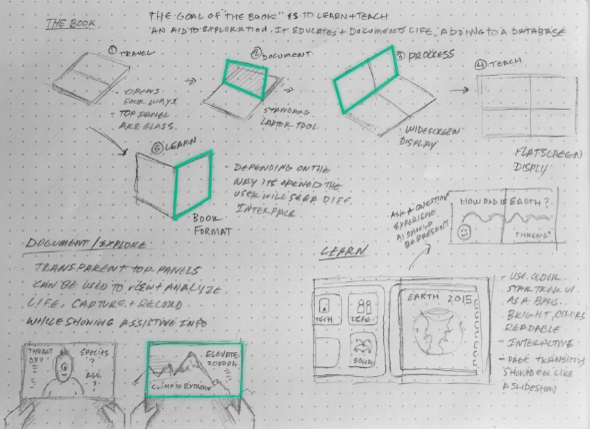 THE BOOK
THE GOAL OF "THE BOOK" IS TO LEARN + TEACH
AN AID TO EXPLORATION. IT EDUCATES + DOCUMENTS LIFE, ADDING TO A DATABASE
① TRAVEL
- OPENS
FOUR WAYS
- TOP PANEL
ARE GLASS.
② DOCUMENT
STANDARD
LAPTOP TOOL
③ PROCESS
- WIDESCREEN
DISPLAY
④ TEACH
FLATSCREEN
DISPLY
⑤ LEARN
BOOK
FORMAT
- DEPENDING ON THE
WAY ITS OPENED THE
USER WILL SEE A DIFF.
INTERFACE
DOCUMENT / EXPLORE
TRANSPARENT TOP PANELS
CAN BE USED TO VIEW + ANALYZE
LIFE, CAPTURE + RECORD
WHILE SHOWING ASSISTIVE INFO
THREAT
SPECIES
?
AGE
?
ELEVATE
CLIMATE EXTREME
LEARN
ASK A QUESTION
EXPERIENCE
AI SHOULD
BE PRESENT
HOW OLD IS EARTH?
TECH
LIFE
SOCIAL
EARTH 2015
- USE OLDER
STAR TREK UI
AS A BASE.
BRIGHT, COLORS
READABLE
- INTERACTIVE
- PAGE TRANSITIONS
SHOULD FEEL LIKE
A SLIDESHOW